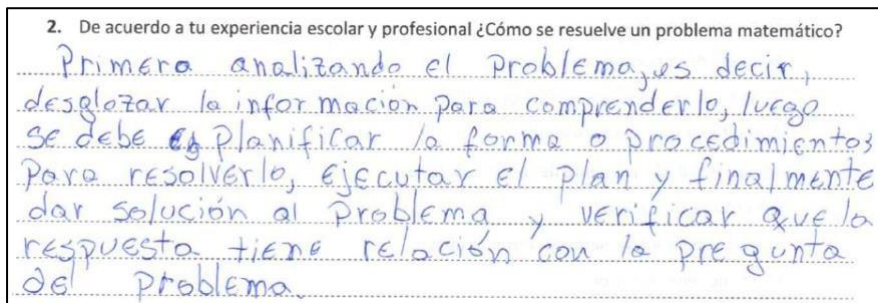 2. De acuerdo a tu experiencia escolar y profesional ¿Cómo se resuelve un problema matemático?
Primero analizando el problema, es decir,
desglozar la información para comprenderlo, luego
se debe planificar la forma o procedimientos
para resolverlo, ejecutar el plan y finalmente
dar solución al problema y verificar que la
respuesta tiene relación con la pregunta
del problema.